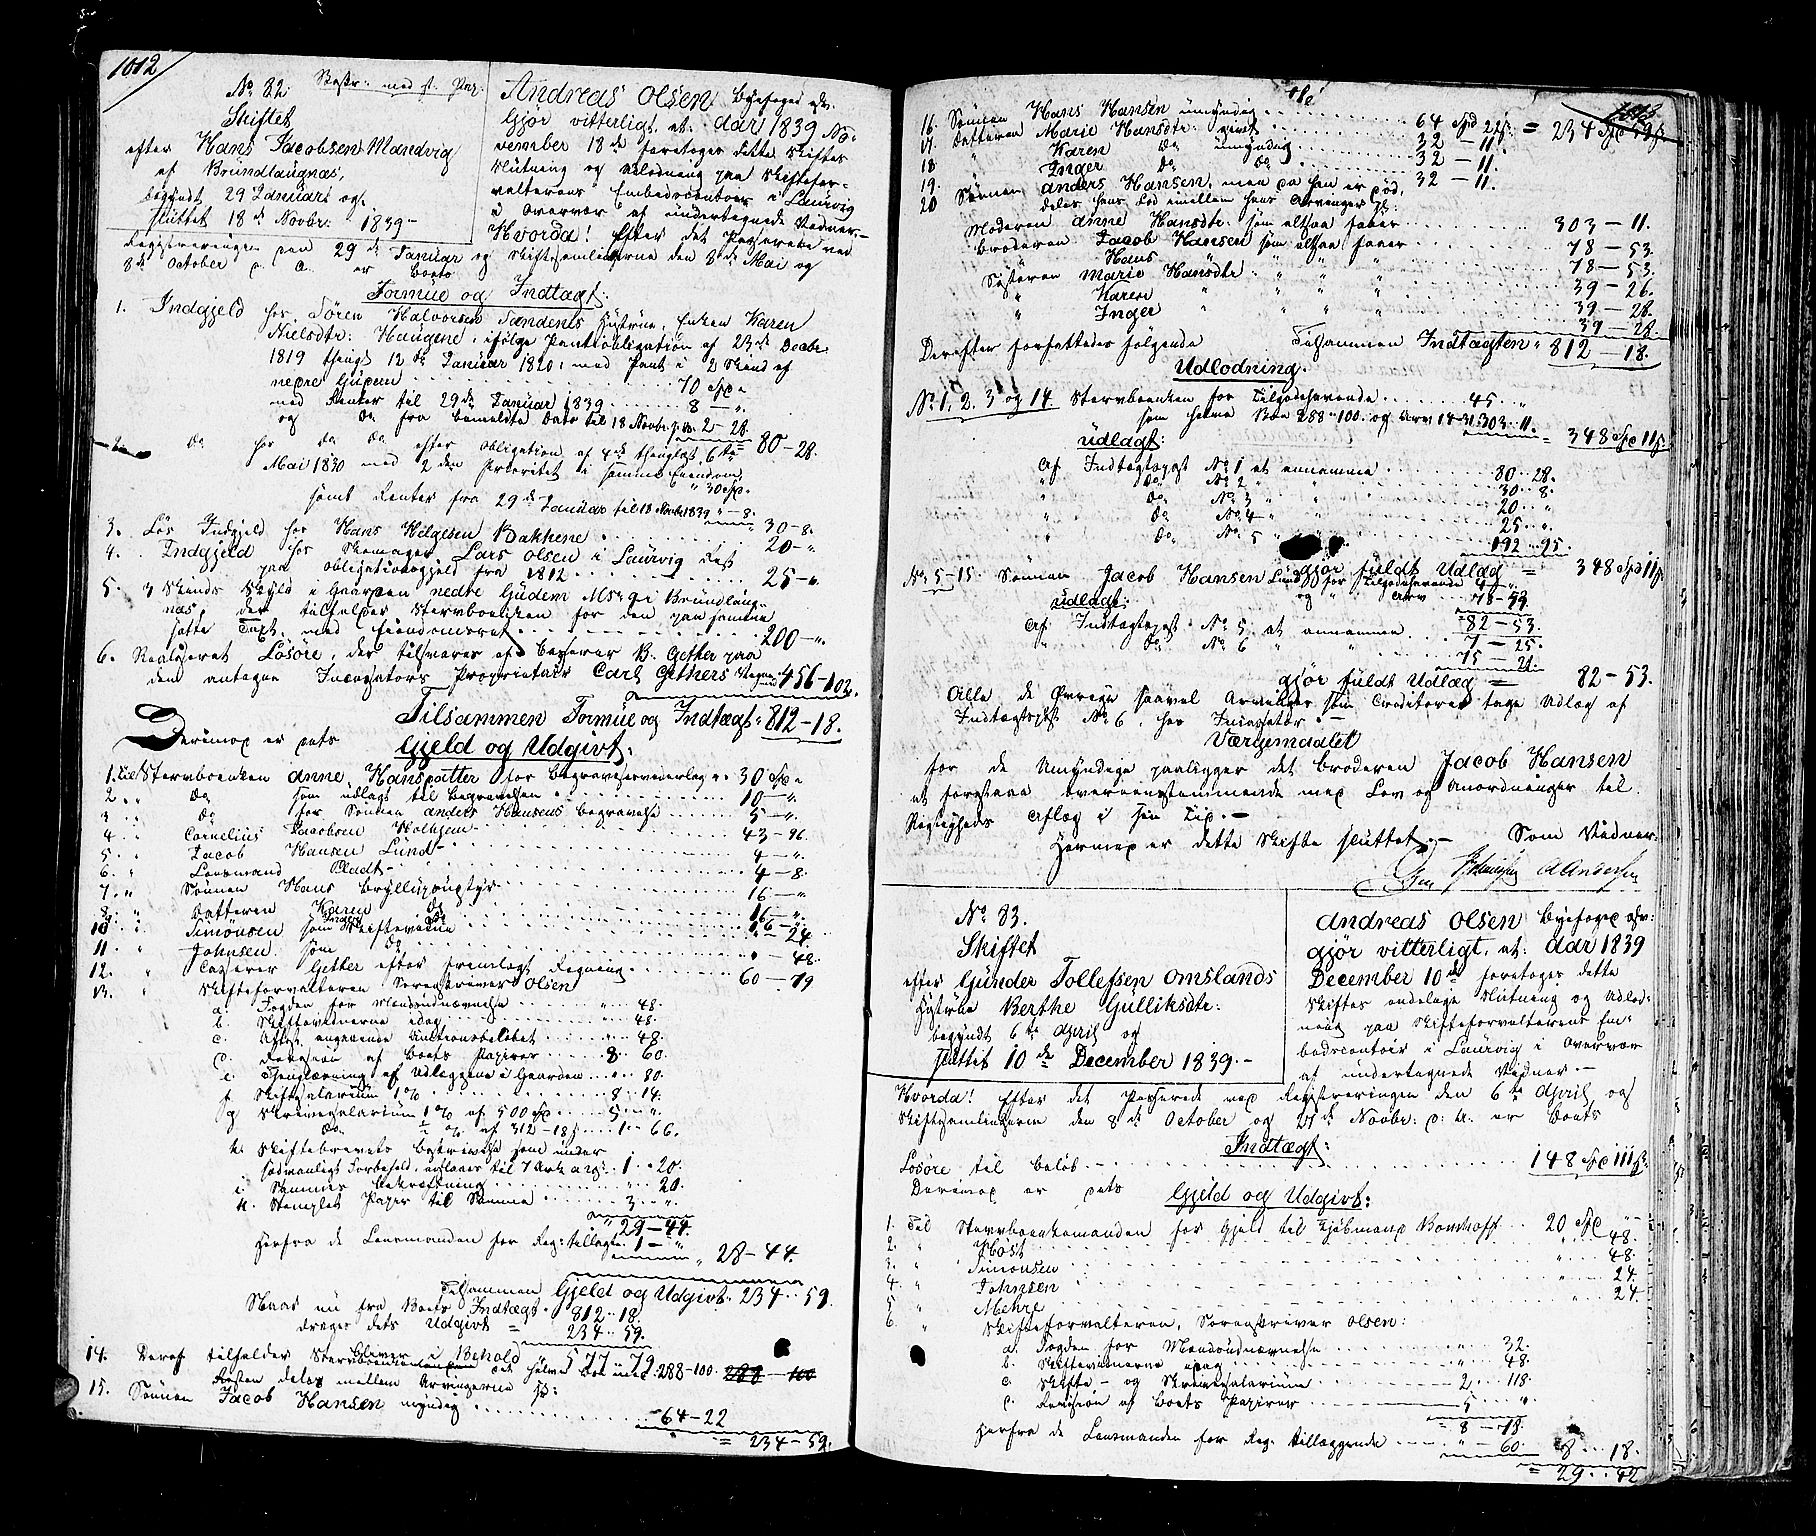 1012
No 82. Bestr: med st. Pap:
Skiftet
efter Hans Jacobsen Mandvig
af Brundlaugnæs,
begyndt 29 Januari og
sluttet 18de Novbr: 1839 -
Andreas Olsen Byefoged
Gjør vitterligt, at Aar 1839 No-
vember 18de foretoges dette Skiftes
Slutning og Udlodning paa Skiftefor-
valterens Embedscontoir i Laurvig
i Overvær af undertegnede Vidner. -
Hvorda! Efter det Passerede ved
Registreringen den 29de Januar og Skiftesamlingerne den 8de Mai og
8de October d. A. er Boets
Formue og Indtægt:
1. Indgjeld hos Søren Halvorsen Sandens Hustrue, Enken Karen
Nielsdtr: Haugene, ifølge Pantobligation af 23de Decbr
1819 thingl. 12te Januar 1820, med Pant i 2 Skind af
nedre Gudem 70 Spd "
med Renter til 29de Januar 1839 8 — "
og do fra bemeldte Dato til 18 Novbr 2 - 28. 80 - 28.
2. do hos do do efter Obligation af 4de thinglæst 6te
Mai 1830 med 2den Prioritet i samme Eiendom 30 Spd.
samt Renter fra 29de Januar til 18 Novbr 1839 " - 8. 30 - 8.
3. Løs Indgjeld hos Hans Helgesen Bakkene 20 - "
4. Indgjeld hos Skomager Lars Olsen i Laurvig Rest
paa Obligationsgjeld fra 1812 25 - "
5. 4 Skinds Skyld i Gaarden nedre Gudem No 9 i Brundlaug-
næs, der tilfalder Sterveboenken for den paa samme
satte Taxt, med Eiendomsret 200 - "
6. Realiseret Løsøre, der tilsvares af Casserer B. Gether paa
den antagne Incassators Proprietair Carl Gethers Vegne med 456 - 102.
Tilsammen Formue og Indtægt 812 - 18.
Derimod er dets Gjeld og Udgivt:
1. Til Stervboenken Anne Hansdatter for Begravelsesudlæg 30 Spd "
2. " do som udlagt til Begravelsen 10 — "
3. " do for Sønnen Anders Hansens Begravelse 5 — "
4. " Cornelius Jacobsen Holhjem 43 - 96.
5. " Jacob Hansen Lund 4 — "
6. " Lensmand Oladt 4 - 8.
7. " Sønnen Hans Bryllupsudstyr 16 — "
8. " Datteren Karen do 16 — "
9. " Inger do 16 — "
10. " Simonsen som Skiftevidne " - 24
11. " Johnsen som do " - 48.
12. " Casserer Gether efter fremlagt Regning 60 — 79
13. " Skifteforvalteren Sorenskriver Olsen
a. Fogden for Mandsudnævnelse " 48.
b. Skiftevidnerne idag " 48.
c. Attest angaaende Auctionsbeløbet " 48.
d. Revision af Boets Papirer 8. 60.
e. Thinglæsning af Udlægget i Gaarden " 80.
f. Skiftesalarium 1% 8. 14.
g. Skriversalarium 1% af 500 Spd 5. "
do ½% af 312 - 18ß 1. 66.
h. Skiftebrevets Beskrivelse som under
sædvanligt Forbehold, anslaaes til 7 Ark a 20ß 1. 20.
i. Sammes Bekræftning " 20.
k. Stemplet Papir til Samme 3. "
29 - 44.
Herfra de Lensmanden for Reg: tillagte 1 - " 28 - 44.
Tilsammen Gjeld og Udgivt 234 .. 59.
Naar nu fra Boets Indtægt 812 .. 18.
drages dets Udgivt 234 .. 59.
Bliver i Behold 577 .. 79.
14. Deraf tilfalder Stervboenken den halve Bos med 288 - 100. 288 - 100
Resten deles mellem Arvingerne så:
15. Sønnen Jacob Hansen myndig 64 - 22
= 234 - 59.
1013
16. Sønnen Hans Hansen umyndig 64 Spd 22ß. = 234 Spd 59ß.
17. Datteren Marie Hansdtr. givt 32 - 11.
18 " Karen do umyndig 32 - 11.
19. " Inger do do 32 - 11.
20 Sønnen Anders Hansen, men da han er død,
deles hans Lod imellem hans Arvinger så:
Moderen Anne Hansdtr. som altsaa faaer 303 - 11.
Broderen Jacob Hansen som altsaa faaer 78 - 53.
" Hans " " " " 78 - 53.
Søsteren Marie Hansdtr " " " 39 - 26.
" Karen " " " " 39 - 28.
" Inger " " " " 39 - 28.
Tilsammen Indtægten 812 - 18.
Derefter forfattedes følgende
Udlodning.
No 1. 2. 3 og 14 Stervboenken for Tilgodehavende 45. "
som halve Boe 288 - 100. og Arv 14 - 31: 303 .. 11. = 348 Spd 11ß.
Udlagt:
Af Indtægtspost No 1 at annamme 80 .. 28.
" do No 2 " " 30 .. 8.
" do No 3 " " 20 .. "
" do No 4 " " 25 .. "
" do No 5 " " 192 .. 95.
gjør fuldt Udlæg = 348 Spd 11ß.
No 5 - 15. Sønnen Jacob Hansen Lund for Tilgodehavende 4 - "
og " Arv 78 - 53.
82 - 53.
Udlagt:
Af Indtægtspost No 5 at annamme 7 - 25.
" do No 6 " " 75 - 28.
gjør fuldt Udlæg = 82 - 53.
Alle de Øvrige saavel Arvinger som Creditorer tage Udlæg af
Indtægtspost No 6, hos Incassator. -
Værgemaalet
for de Umyndige paaligger det Broderen Jacob Hansen
at forestaae overeensstemmende med Lov og Anordninger til
Regnskabs Aflæg i sin Tid. -
Hermed er dette Skifte sluttet. - Som Vidner.
A Andersen
No 83.
Skiftet
efter Gunder Tollefsen Omslands
Hustrue Berthe Gulliksdtr.
begyndt 6te April og
sluttet 10de December 1839. -
Andreas Olsen Byefoged
gjør vitterligt, at Aar 1839
December 10de foretoges dette
Skiftes endelige Slutning og Udlod-
ning paa Skifteforvalterens Em-
bedscontoir i Laurvig i Overvær
af undertegnede Vidner. -
Hvorda! Efter det Passerede ved Registreringen den 6te April og
Skiftesamlingerne den 8de October og 21de Novbr: d: A. er Boets
Indtægt:
Løsøre til Beløb 148 Spd 111ß.
Derimod er dets Gjeld og Udgivt:
1. Til Stervboenkemanden for Gjeld til Kjøbmand Bomhoff 20 Spd "
2. " Høst " 48.
3. " Simonsen " 48.
4. " Johnsen " 24.
5 " Mehre " 24.
6. " Skifteforvalteren, Sorenskriver Olsen:
a. Fogden for Mandsudnævnelse " 32.
b. Skiftevidnerne idag " 48.
c. Skifte- og Skriversalarium 2 .. 118.
d. Revision af Boets Papirer 5 "
= 8 - 78.
Herfra de Lensmanden for Reg. tillæggende " - 60. 8 .. 18.
= 29 .. 42